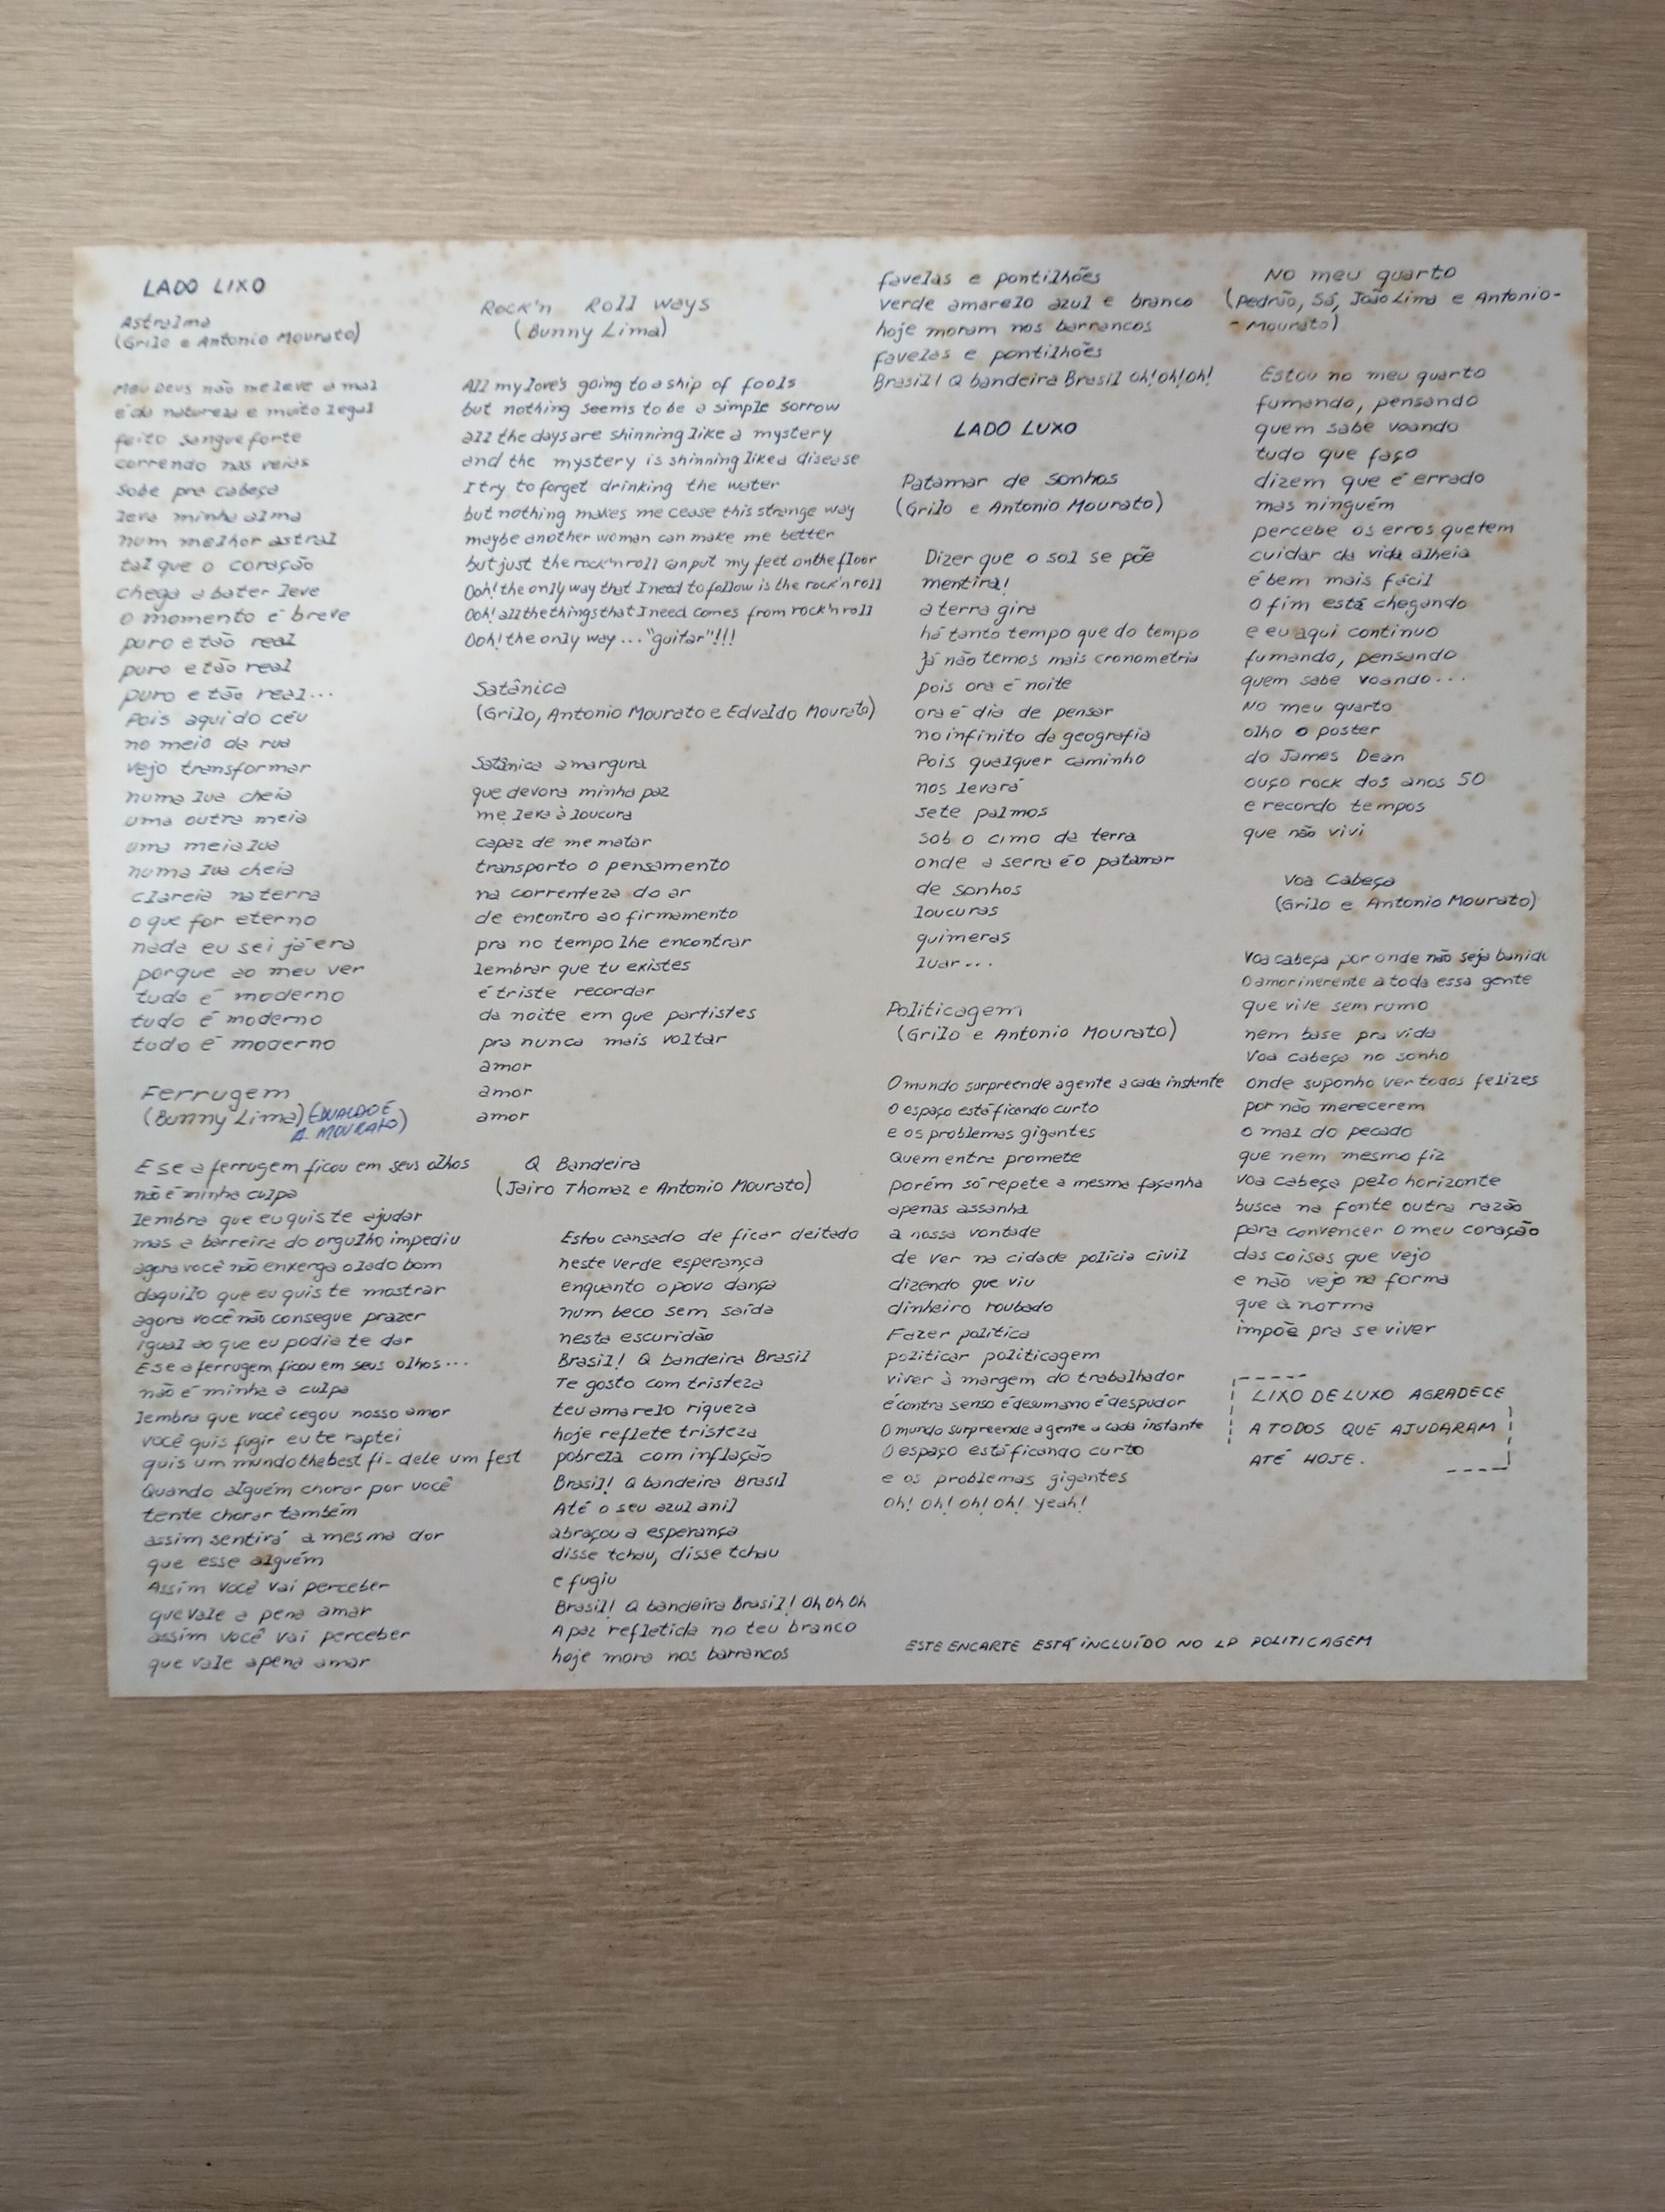 LADO LIXO
Astralma
(Grilo e Antonio Mourato)
Meu Deus não me leve a mal
é da natureza e muito legal
feito sangue forte
correndo nas veias
sobe pra cabeça
leva minha alma
num melhor astral
tal que o coração
chega a bater leve
o momento é breve
puro e tão real
puro e tão real
puro e tão real...
Pois aqui do céu
no meio da rua
vejo transformar
numa lua cheia
uma outra meia
uma meia lua
numa lua cheia
clareia na terra
o que for eterno
nada eu sei já era
porque ao meu ver
tudo é moderno
tudo é moderno
tudo é moderno
Ferrugem
(Bunny Lima) EDVALDO E
A. MOURATO)
E se a ferrugem ficou em seus olhos
não é minha culpa
lembra que eu quis te ajudar
mas a barreira do orgulho impediu
agora você não enxerga o lado bom
daquilo que eu quis te mostrar
agora você não consegue prazer
igual ao que eu podia te dar
E se a ferrugem ficou em seus olhos...
não é minha a culpa
lembra que você cegou nosso amor
você quis fugir eu te raptei
quis um mundo the best fi- dele um fest
Quando alguém chorar por você
tente chorar também
assim sentirá a mesma dor
que esse alguém
Assim você vai perceber
que vale a pena amar
assim você vai perceber
que vale a pena amar
Rock'n Roll ways
(Bunny Lima)
All my love's going to a ship of fools
but nothing seems to be a simple sorrow
all the days are shinning like a mystery
and the mystery is shinning like a disease
I try to forget drinking the water
but nothing makes me cease this strange way
maybe another woman can make me better
but just the rock'n roll can put my feet on the floor
Ooh! the only way that I need to follow is the rock'n roll
Ooh! all the things that I need comes from rock'n roll
Ooh! the only way... "guitar"!!!
Satânica
(Grilo, Antonio Mourato e Edvaldo Mourato)
Satânica amargura
que devora minha paz
me leva à loucura
capaz de me matar
transporto o pensamento
na correnteza do ar
de encontro ao firmamento
pra no tempo lhe encontrar
lembrar que tu existes
é triste recordar
da noite em que partistes
pra nunca mais voltar
amor
amor
amor
Q Bandeira
(Jairo Thomaz e Antonio Mourato)
Estou cansado de ficar deitado
neste verde esperança
enquanto o povo dança
num beco sem saída
nesta escuridão
Brasil! Q bandeira Brasil
Te gosto com tristeza
teu amarelo riqueza
hoje reflete tristeza
pobreza com inflação
Brasil! Q bandeira Brasil
Até o seu azul anil
abraçou a esperança
disse tchau, disse tchau
e fugiu
Brasil! Q bandeira Brasil! Oh Oh Oh
A paz refletida no teu branco
hoje mora nos barrancos
favelas e pontilhões
verde amarelo azul e branco
hoje moram nos barrancos
favelas e pontilhões
Brasil! Q bandeira Brasil Oh! Oh! Oh!
LADO LUXO
Patamar de sonhos
(Grilo e Antonio Mourato)
Dizer que o sol se põe
mentira!
a terra gira
há tanto tempo que do tempo
já não temos mais cronometria
pois ora é noite
ora é dia de pensar
no infinito da geografia
Pois qualquer caminho
nos levará
sete palmos
sob o cimo da terra
onde a serra é o patamar
de sonhos
loucuras
quimeras
luar...
Politicagem
(Grilo e Antonio Mourato)
O mundo surpreende a gente a cada instante
O espaço está ficando curto
e os problemas gigantes
Quem entra promete
porém só repete a mesma façanha
apenas assanha
a nossa vontade
de ver na cidade polícia civil
dizendo que viu
dinheiro roubado
Fazer política
politicar politicagem
viver à margem do trabalhador
é contra senso é desumano é despudor
O mundo surpreende a gente a cada instante
O espaço está ficando curto
e os problemas gigantes
Oh! Oh! Oh! Oh! Yeah!
No meu quarto
(Pedrão, Sá, João Lima e Antonio-
- Mourato)
Estou no meu quarto
fumando, pensando
quem sabe voando
tudo que faço
dizem que é errado
mas ninguém
percebe os erros que tem
cuidar da vida alheia
é bem mais fácil
O fim está chegando
e eu aqui continuo
fumando, pensando
quem sabe voando...
No meu quarto
olho o poster
do James Dean
ouço rock dos anos 50
e recordo tempos
que não vivi
Voa Cabeça
(Grilo e Antonio Mourato)
Voa cabeça por onde não seja banido
O amor inerente a toda essa gente
que vive sem rumo
nem base pra vida
Voa cabeça no sonho
onde suponho ver todos felizes
por não merecerem
o mal do pecado
que nem mesmo fiz
Voa cabeça pelo horizonte
busca na fonte outra razão
para convencer o meu coração
das coisas que vejo
e não vejo na forma
que a norma
impõe pra se viver
LIXO DE LUXO AGRADECE
A TODOS QUE AJUDARAM
ATÉ HOJE.
ESTE ENCARTE ESTÁ INCLUÍDO NO LP POLITICAGEM